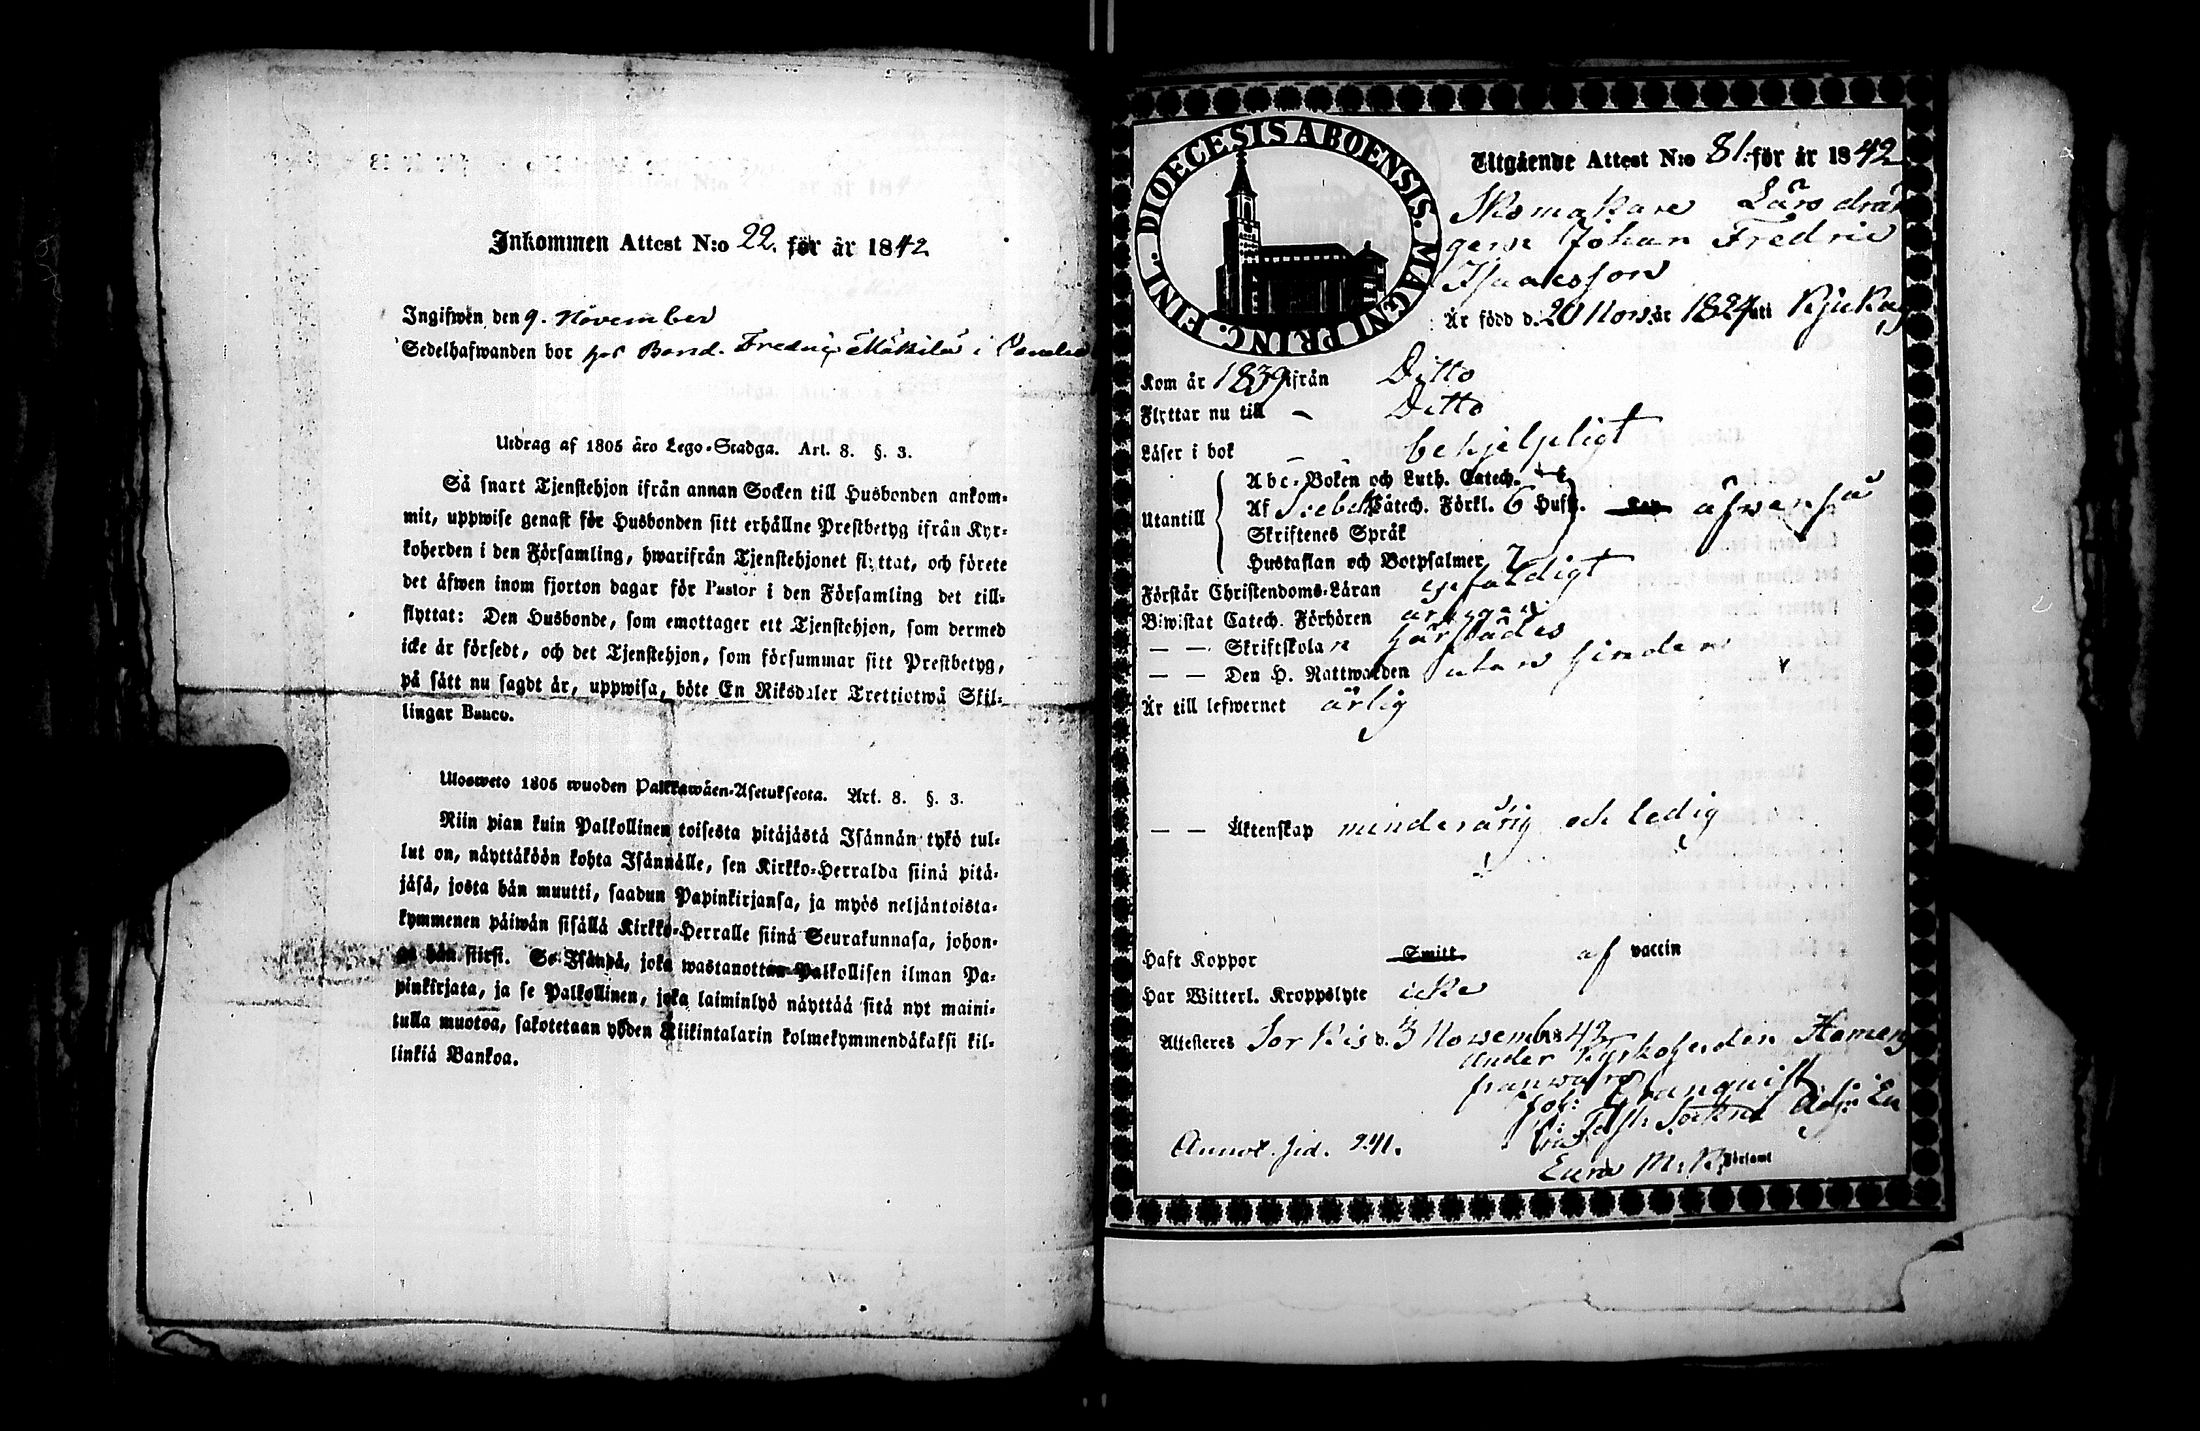 Inkommen Attest N:o 22. för år 1842
Ingifwen den 9. November
Sedelhafwanden bor hos Bond. Fredrig Mäkilä i
Utdrag af 1805 års Lego-Stadga. Art. 8. §. 3.
Så snart Tjenstehjon ifrån annan Socken till Husbonden ankom-
mit, uppwise genast för Husbonden sitt erhållne Prestbetyg ifrån Kyr-
koherden i den Församling, hwarifrån Tjenstehjonet flyttat, och förete
det äfwen inom fjorton dagar för Pastor i den Församling det till-
flyttat: Den Husbonde, som emottager ett Tjenstehjon, som dermed
icke är försedt, och det Tjenstehjon, som försummar sitt Prestbetyg,
på sätt nu sagdt är, uppwisa, böte En Riksdaler Trettiotwå Skil-
lingar Banco.
Ulosweto 1805 wuoden Palkkawäen-Asetuksesta. Art. 8. §. 3.
Niin pian kuin Palkollinen toisesta pitäjästä Isännän tykö tul-
lut on, näyttäköön kohta Isännälle, sen Kirkko-Herralda siinä pitä-
jäsä, josta hän muutti, saadun Papinkirjansa, ja myös neljäntoista-
kymmenen päiwän sisällä Kirkko-Herralle siinä Seurakunnasa, johon-
ga hän siirsi. Se Isändä, joka wastanottaa Palkollisen ilman Pa-
pinkirjata, ja se Palkollinen, joka laiminlyö näyttää sitä nyt maini-
tulla muotoa, sakotetaan yhden Riikintalarin kolmekymmendäkaksi kil-
linkiä Bankoa.
DIOECESIS ABOENSIS. MAGNI PRINC. FINL.
Utgående Attest N:o 81. för år 1842
Skomakare Läro drän
gen Johan Fredric
Isaacsson
Är född d. 20 Nov. år 1824 uti Kjukay
Kom år 1839 ifrån Ditto
Flyttar nu till – Ditto
Läser i bok – – behjelpligt
Utantill
Abc-Boken och Luth. Catech.
Af Sebel Catech. Förkl. 6 Hufst. äfwenså
Skriftenes Språk
Hustaflan och Botpsalmer 7
Förstår Christendoms-Läran enfaldigt
Biwistat Catech. Förhören årligen
— — Skriftskolan härstädes
— — Den H. Nattwarden utan hinder
Är till lefwernet ärlig
— — Äktenskap minderårig och ledig
Haft Koppor Smitt af vaccin
Har Witterl. Kroppslyte icke
Attesteres Sorkis d. 3 Novemb. 1842
under Kyrkoherden
franwaro
Joh: Granquist
Adj: i Eu
Annot. sid. 241.
Eura M. K. Församl